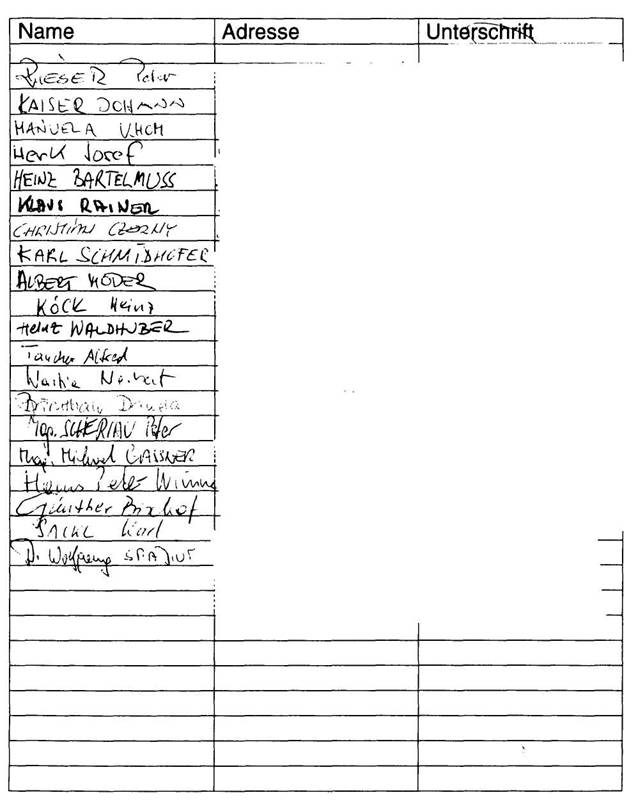 Name Adresse Unterschrift
RIESER Peter
KAISER JOHANN
MANUELA
Herk Josef
HEINZ BARTELMUSS
KLAUS RAINER
CHRISTIAN CZERNY
KARL SCHMIDHOFER
ALBERT MODER
KÖCK Heinz
Heinz WALDHUBER
Taucher Alfred
Norbert
Mag. SCHERIAU Peter
Mag. Michael GAISSNER
Hans Peter
Günther Bischof
Karl
Dr. Wolfgang